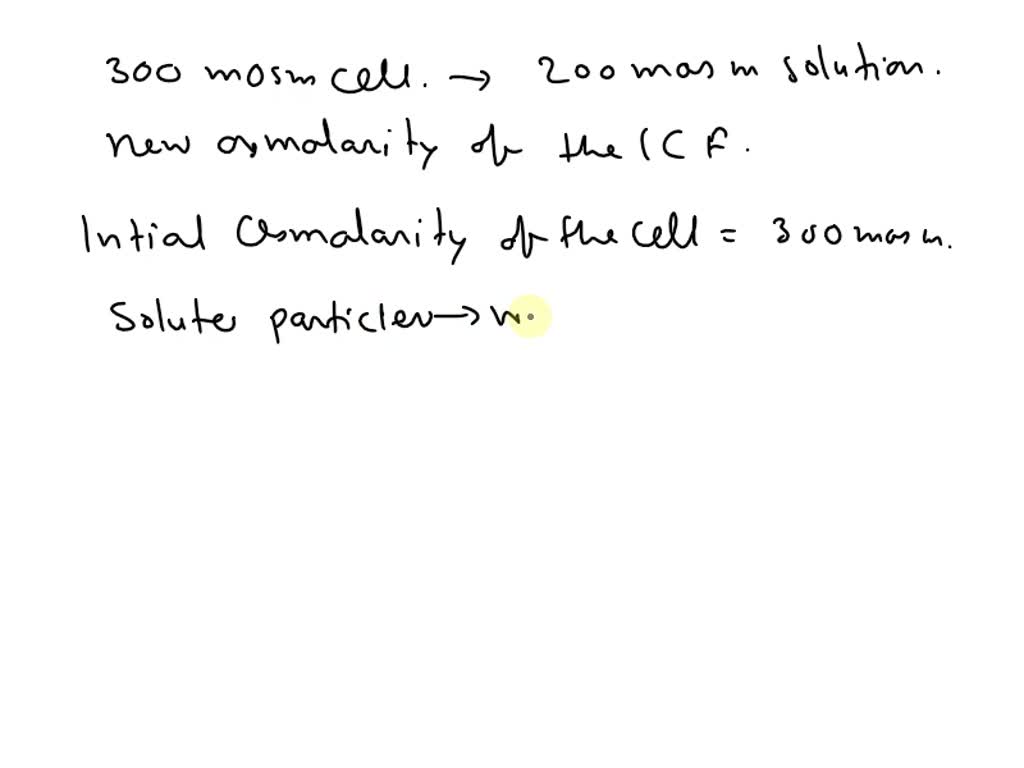 300 mosm cell. → 200 mosm solution.
New osmolarity of the ICF.
Intial Osmolarity of the cell = 300 mosm.
Solute particles → w